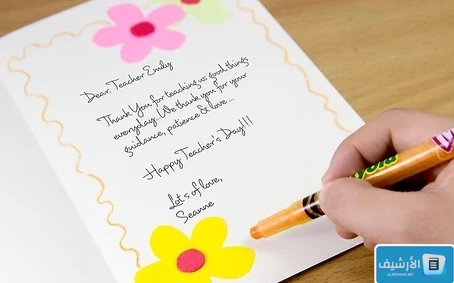 Dear. Teacher Emily
Thank You for teaching us good things
everyday. We thank you for your
guidance, patience & love...
Happy Teacher's Day!!!
Lots of love,
Seanne
الأرشيف